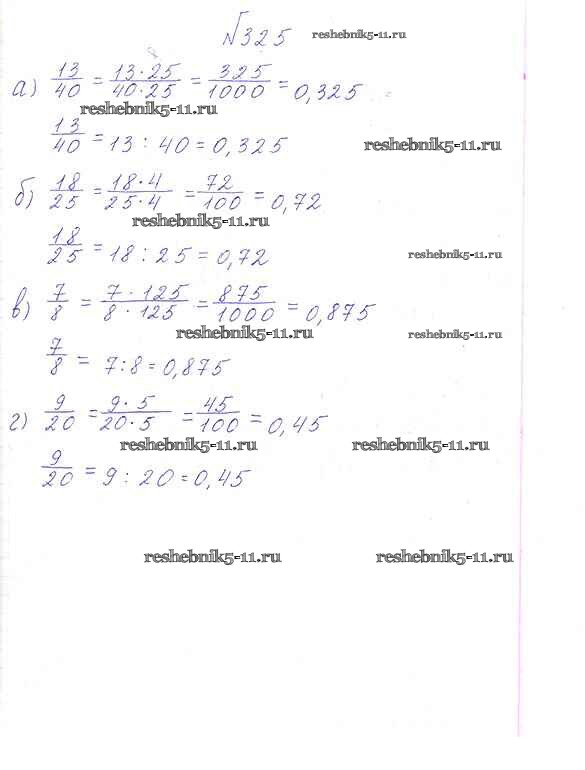 №325 reshebnik5-11.ru
а) 13/40 = 13·25/40·25 = 325/1000 = 0,325
reshebnik5-11.ru
13/40 = 13 : 40 = 0,325 reshebnik5-11.ru
б) 18/25 = 18·4/25·4 = 72/100 = 0,72
reshebnik5-11.ru
18/25 = 18 : 25 = 0,72 reshebnik5-11.ru
в) 7/8 = 7·125/8·125 = 875/1000 = 0,875
reshebnik5-11.ru reshebnik5-11.ru
7/8 = 7:8 = 0,875
г) 9/20 = 9·5/20·5 = 45/100 = 0,45
reshebnik5-11.ru reshebnik5-11.ru
9/20 = 9 : 20 = 0,45
reshebnik5-11.ru reshebnik5-11.ru